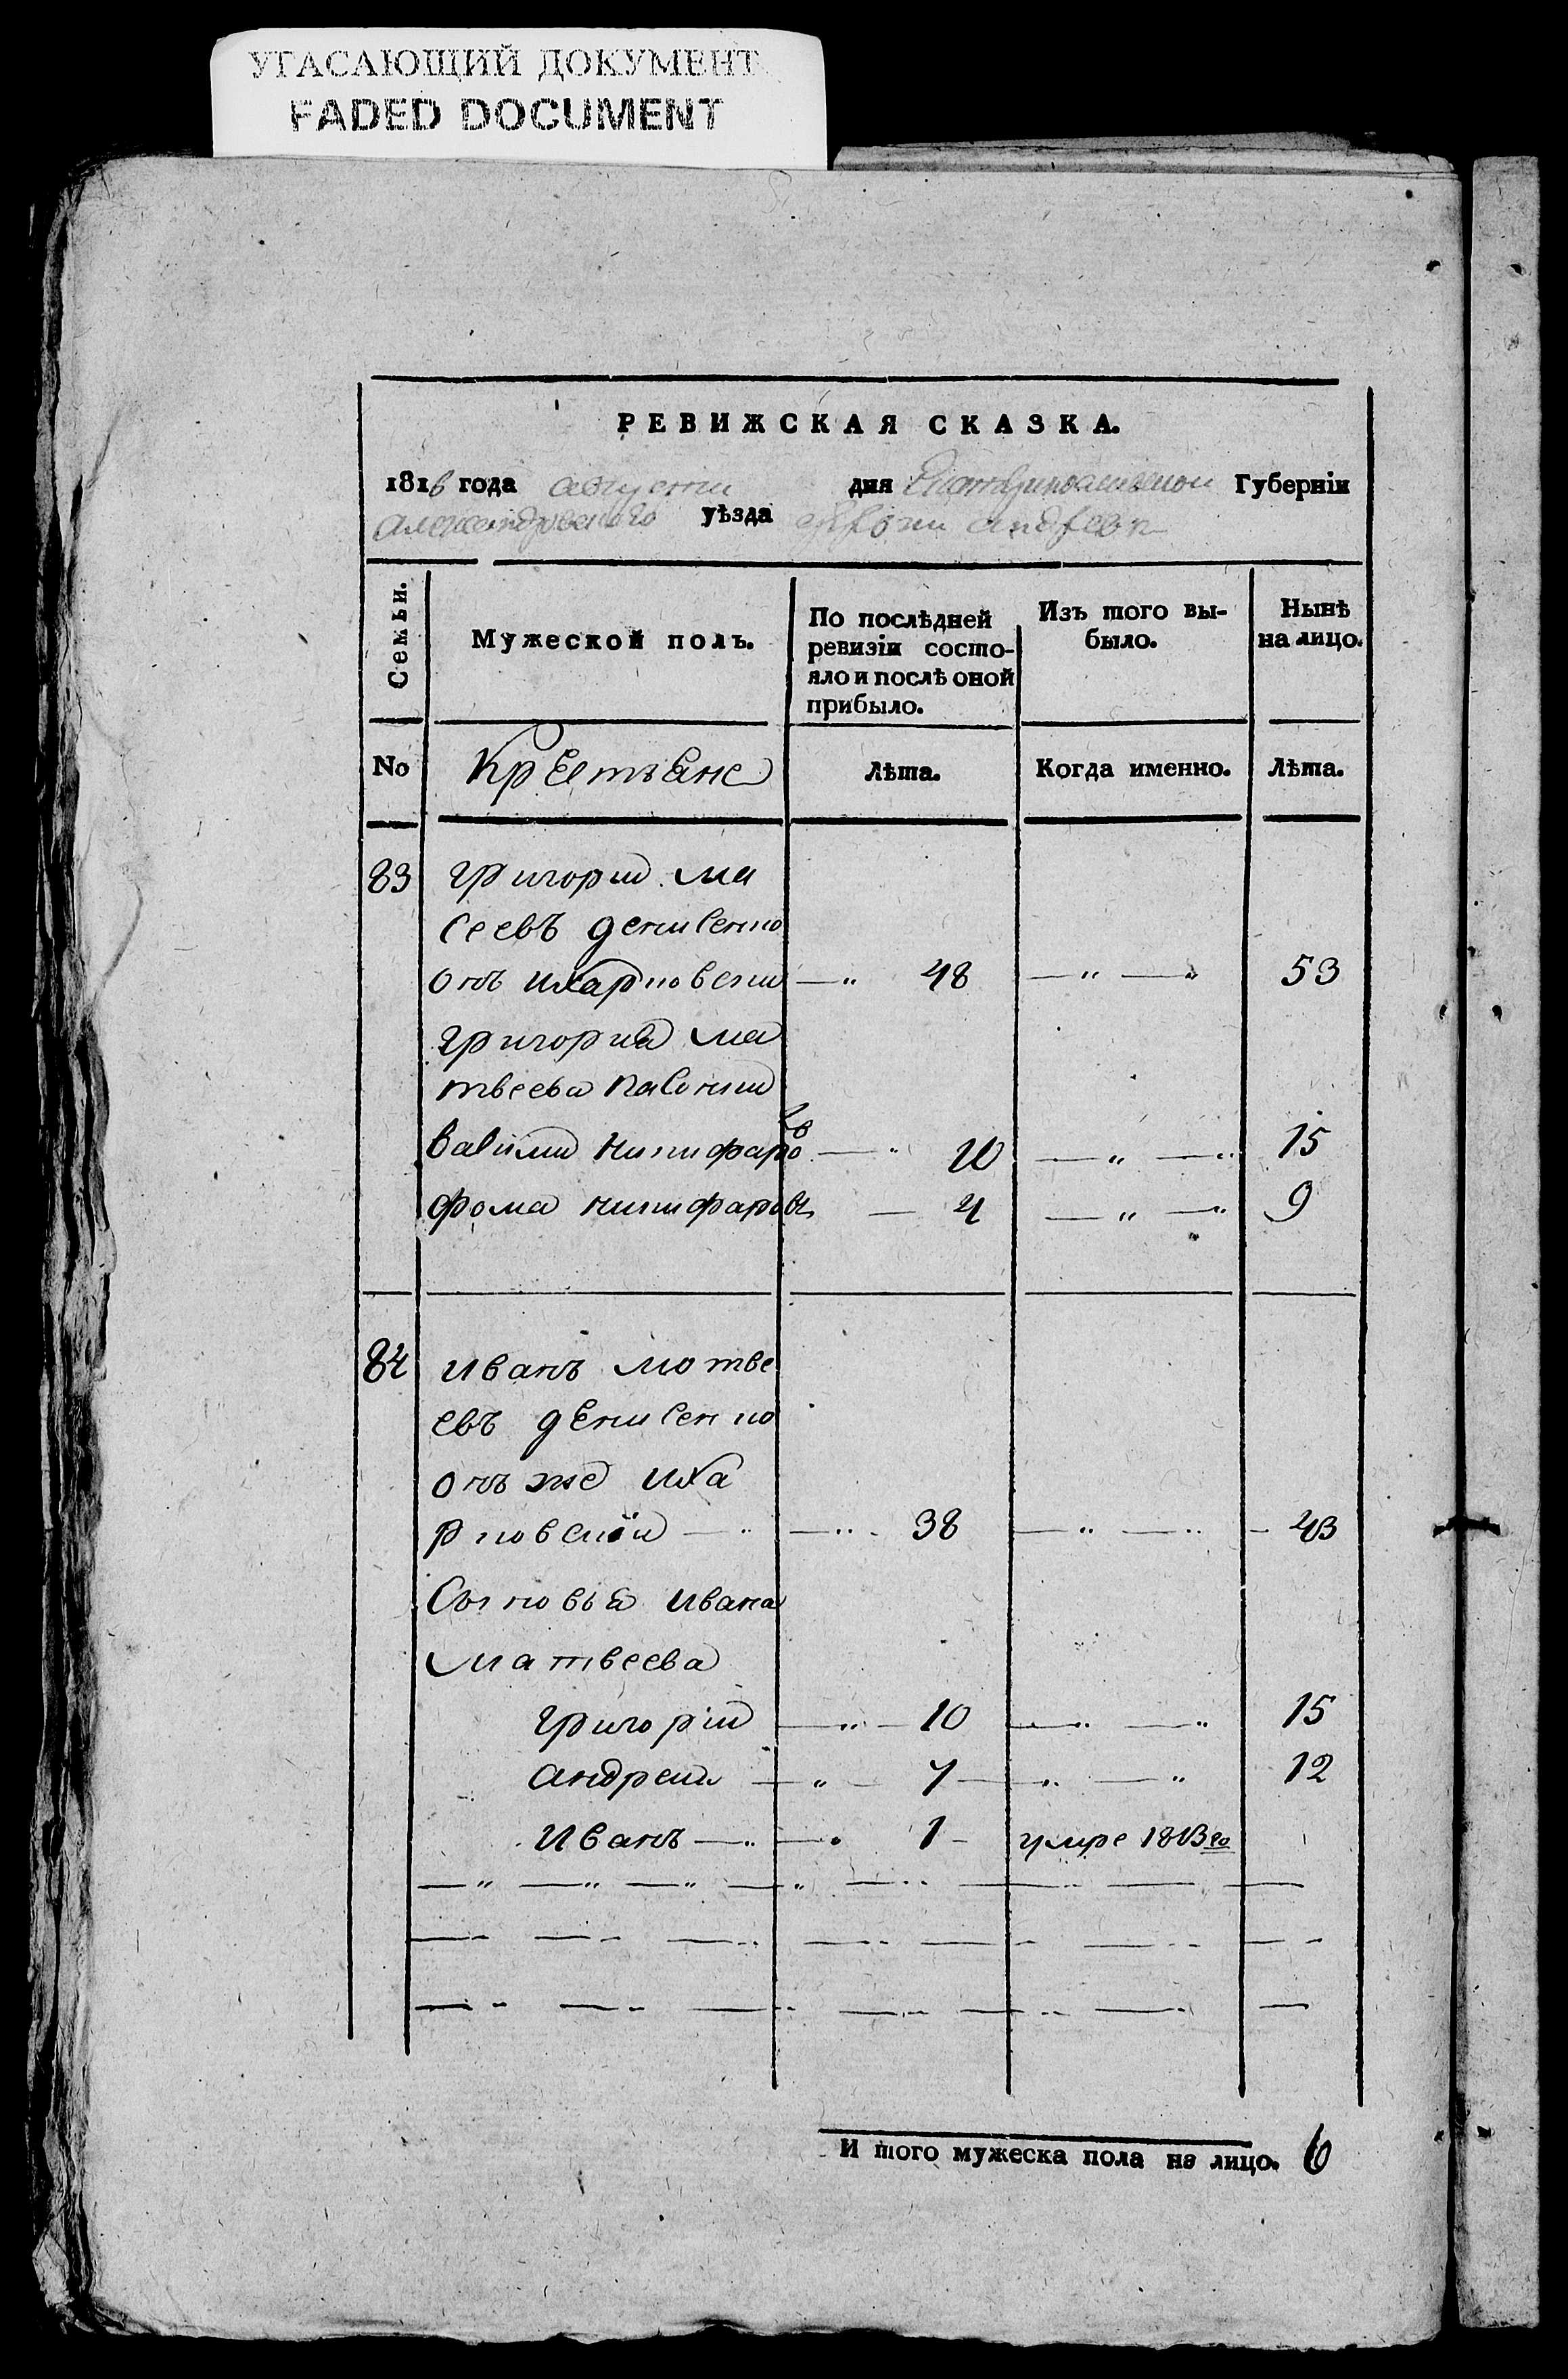 УГАСАЮЩИЙ ДОКУМЕНТ
FADED DOCUMENT
РЕВИЖСКАЯ СКАЗКА.
1816 года августа дня Екатеринославской Губерніи
александровского уѣзда андрѣевк
Семьи.
Мужеской полъ.
По послѣдней ревизіи состо-
яло и послѣ оной
прибыло.
Изъ того вы-
было.
Нынѣ
на лицо.
No Крестьяне Лѣта. Когда именно. Лѣта.
83 григории ма
сеевъ денисенко
онъ 48 53
григория ма
твеева
васили никифаро въ 10 15
фома никифаровъ 4 9
84 иванъ мотве
евъ денисенко
онъ же иха
рковскии 38 43
Сыновья ивана
матвеева
григории 10 15
андреи 7 12
иванъ 1 умре 1813го
И того мужеска пола на лицо. 6